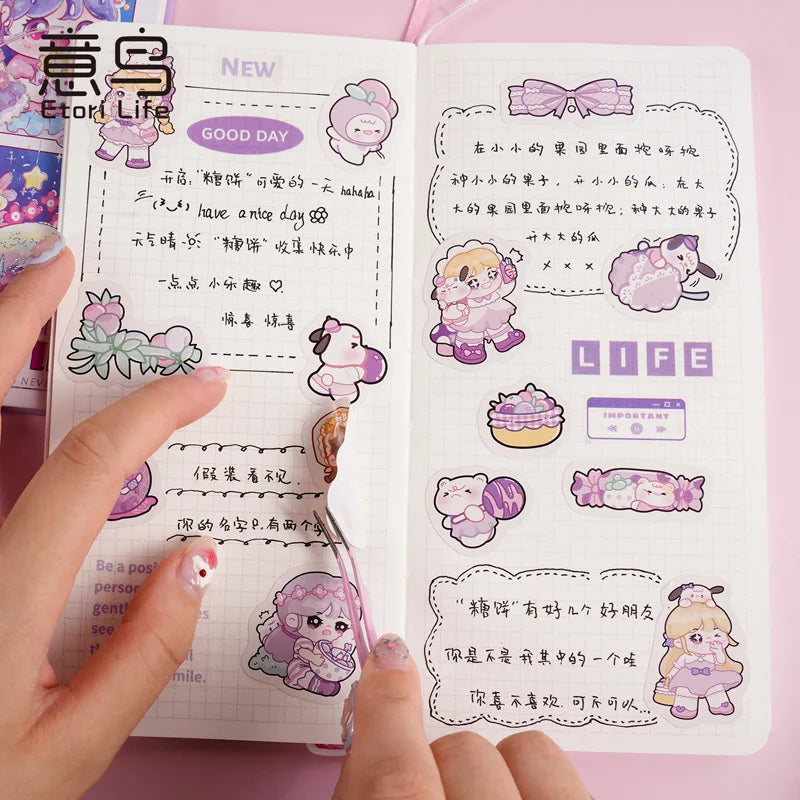 意鸟
Etori Life
NEW
GOOD DAY
开启:"糖饼"可爱的一天 hahaha
have a nice day
天气晴 "糖饼"收集快乐中
一点点小乐趣♡
惊喜 惊喜
假装看不见.
你的名字只有两个字
Be a posi
person
gent es
see
th al
mile.
NEVE
在小小的果园里面挖呀挖
种小小的果子, 开小小的瓜; 在大
大的果园里面挖呀挖; 种大大的果子
开大大的瓜
× × ×
LIFE
IMPORTANT
"糖饼"有好几个好朋友
你是不是我其中的一个哇
你喜不喜欢.可不可以...